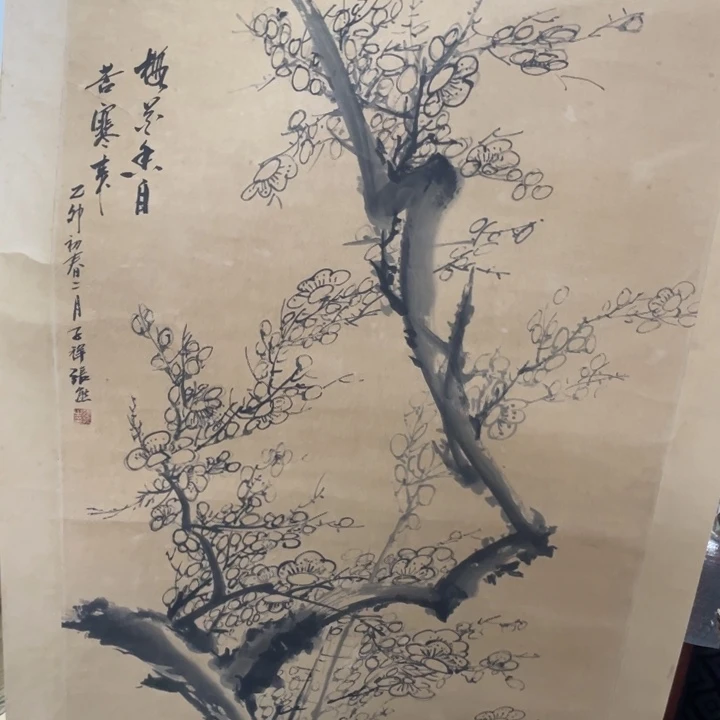 梅花香自
苦寒来
乙卯初春二月子祥張熊